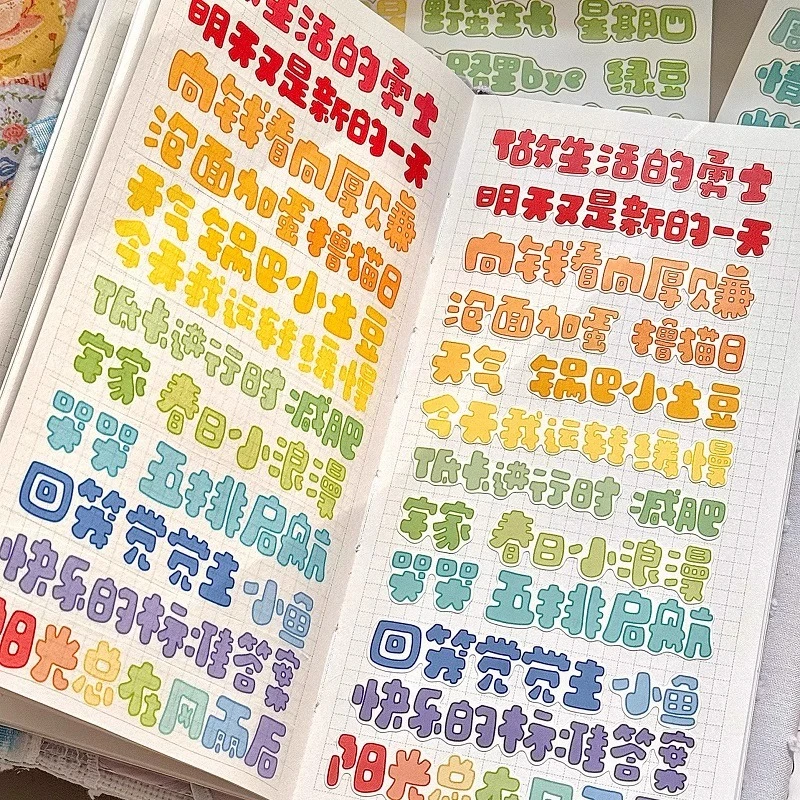 野蛮生长 星期四
路里bye 绿豆
生活的勇士
明天又是新的一天
向钱看向厚赚
泡面加蛋 撸猫日
天气 锅巴小土豆
今天我运转缓慢
低卡进行时 减肥
宅家 春日小浪漫
哭哭 五排启航
回笼觉觉主 小鱼
快乐的标准答案
阳光总在风雨后
做生活的勇士
明天又是新的一天
向钱看向厚赚
泡面加蛋 撸猫日
天气 锅巴小土豆
今天我运转缓慢
低卡进行时 减肥
宅家 春日小浪漫
哭哭 五排启航
回笼觉觉主 小鱼
快乐的标准答案
阳光总在风